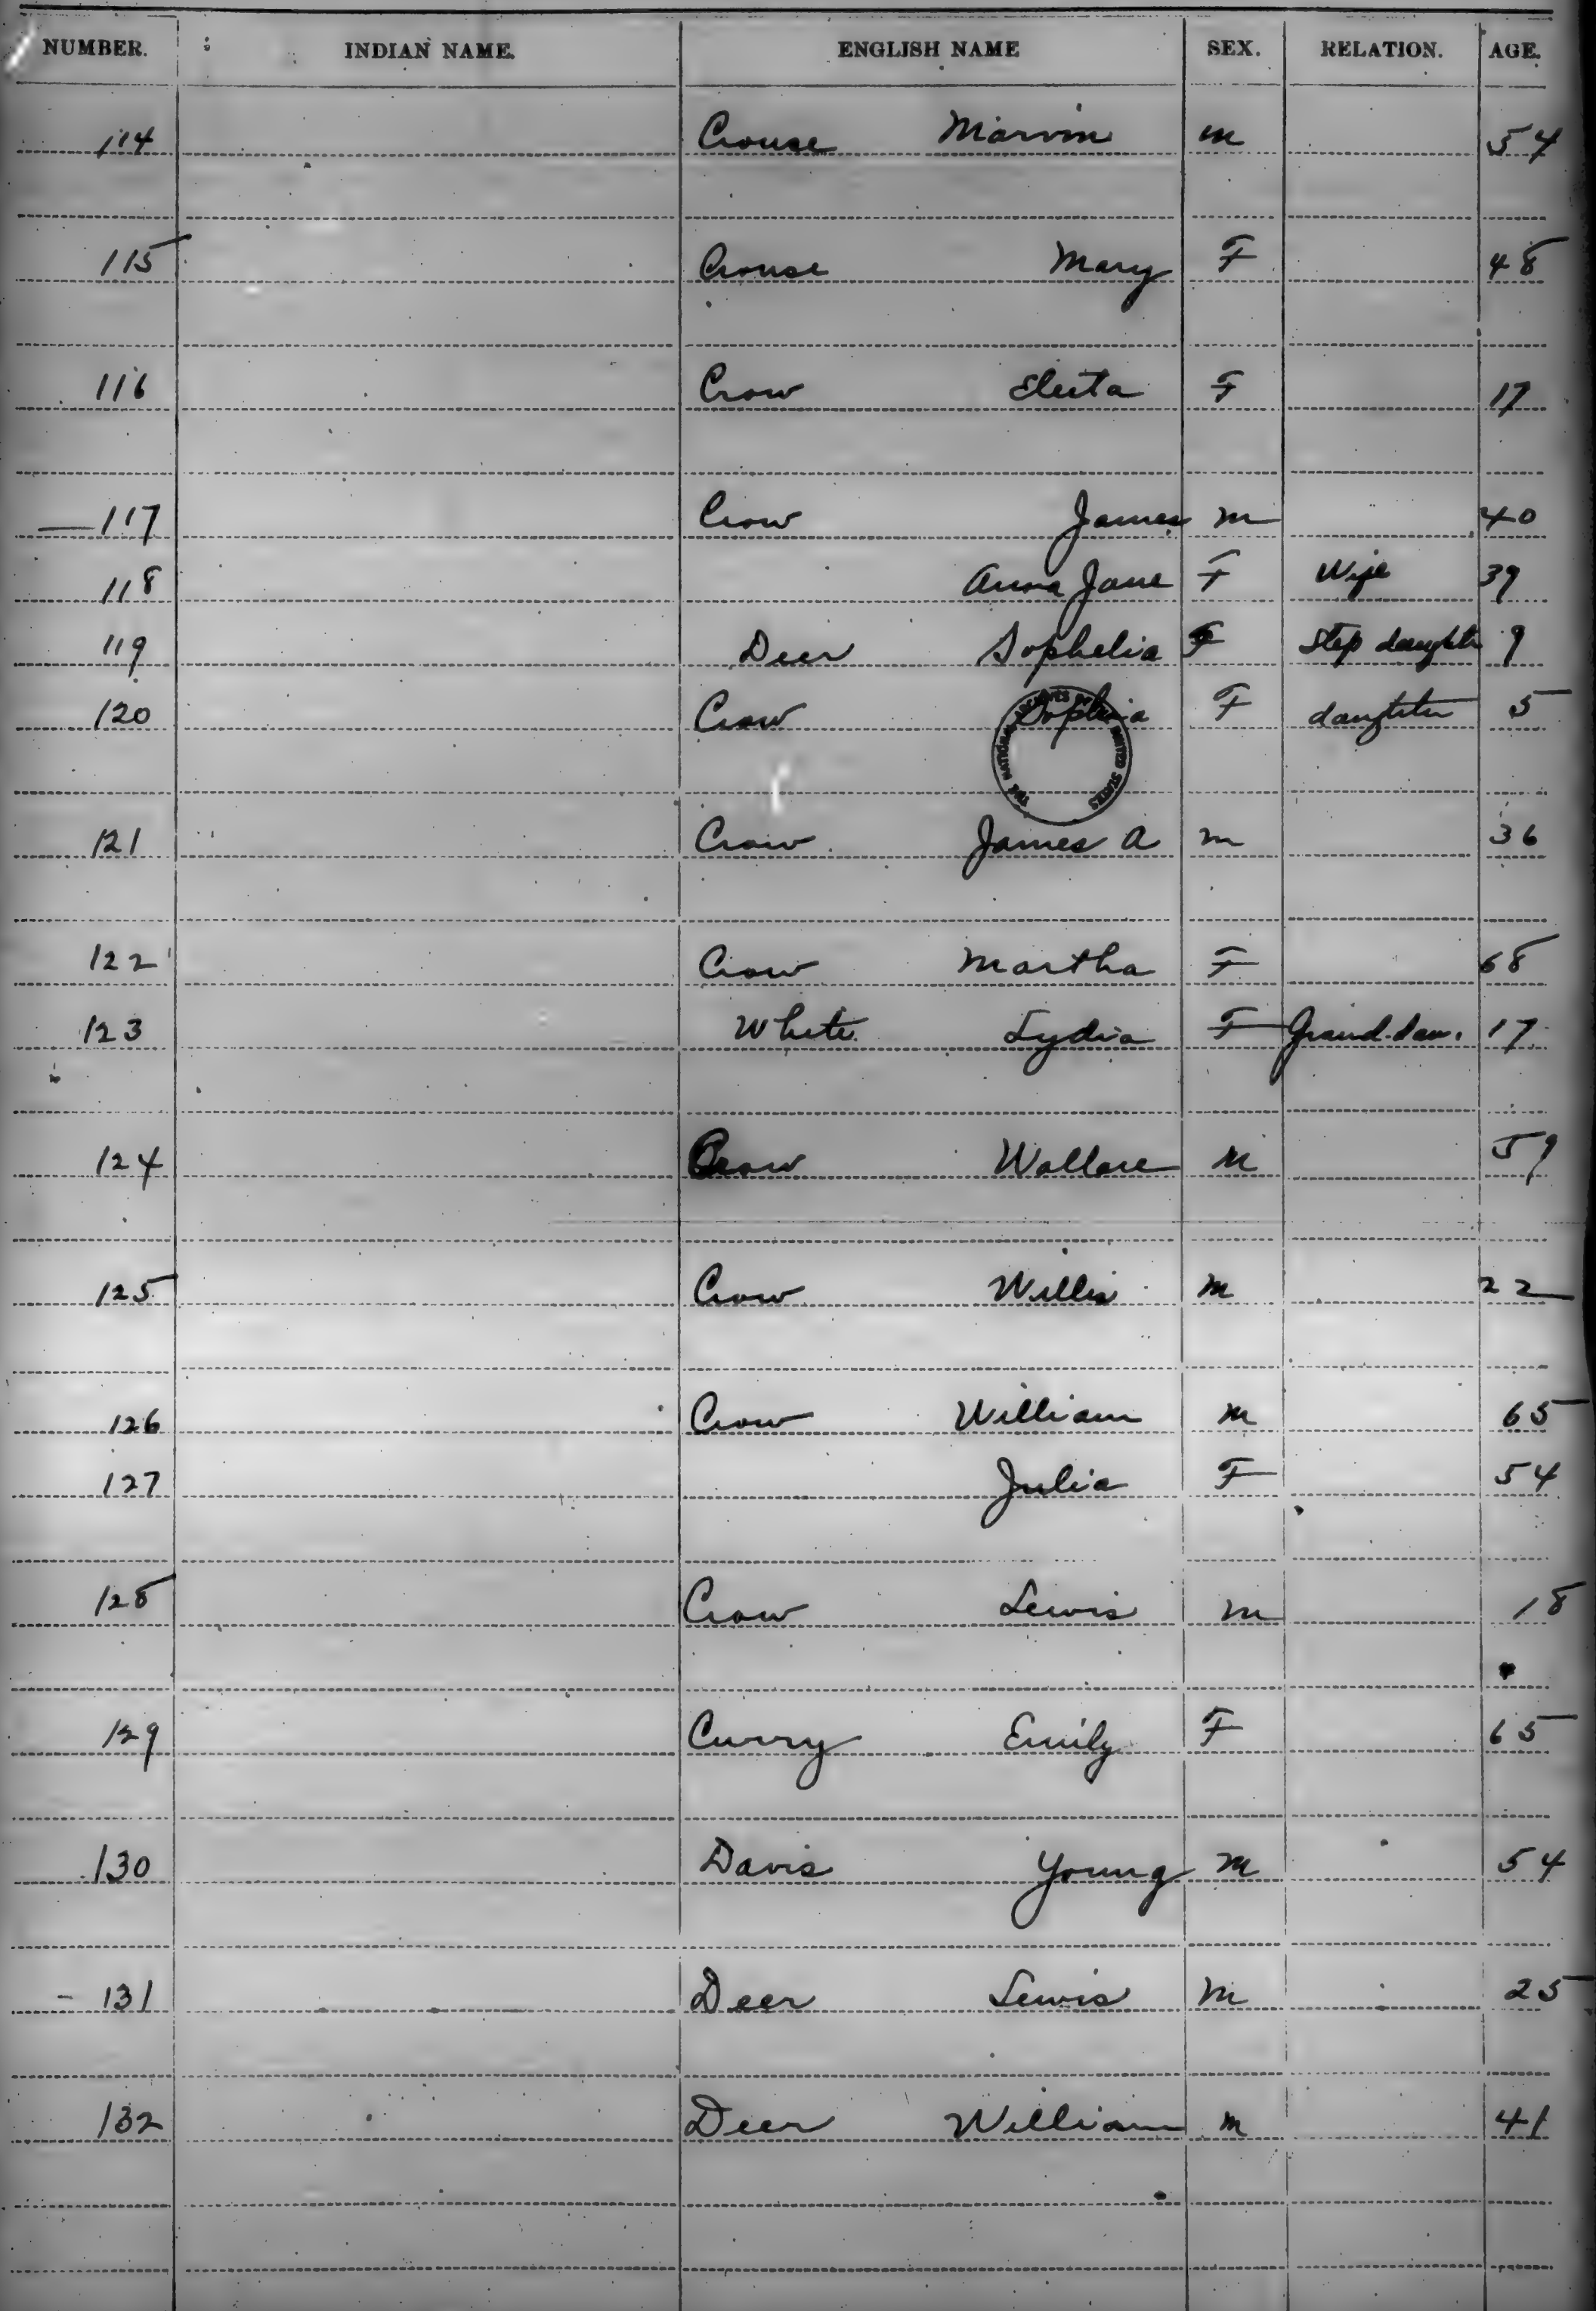 NUMBER. INDIAN NAME. ENGLISH NAME SEX. RELATION. AGE.
114 Crouse Marvin m 54
115 Crouse Mary F 48
116 Crow Electa F 17
117 Crow James m 40
118 Anna Jane F Wife 39
119 Deer Sophelia F Step daughter 9
120 Crow Sophia F daughter 5
THE NATIONAL ARCHIVES OF THE UNITED STATES
121 Crow James A m 36
122 Crow Martha F 68
123 White Lydia F Grand-dau. 17
124 Crow Wallace M 59
125 Crow Willis M 22
126 Crow William m 65
127 Julia F 54
128 Crow Lewis m 18
129 Curry Emily F 65
130 Davis Young m 54
131 Deer Lewis m 25
132 Deer William m 41